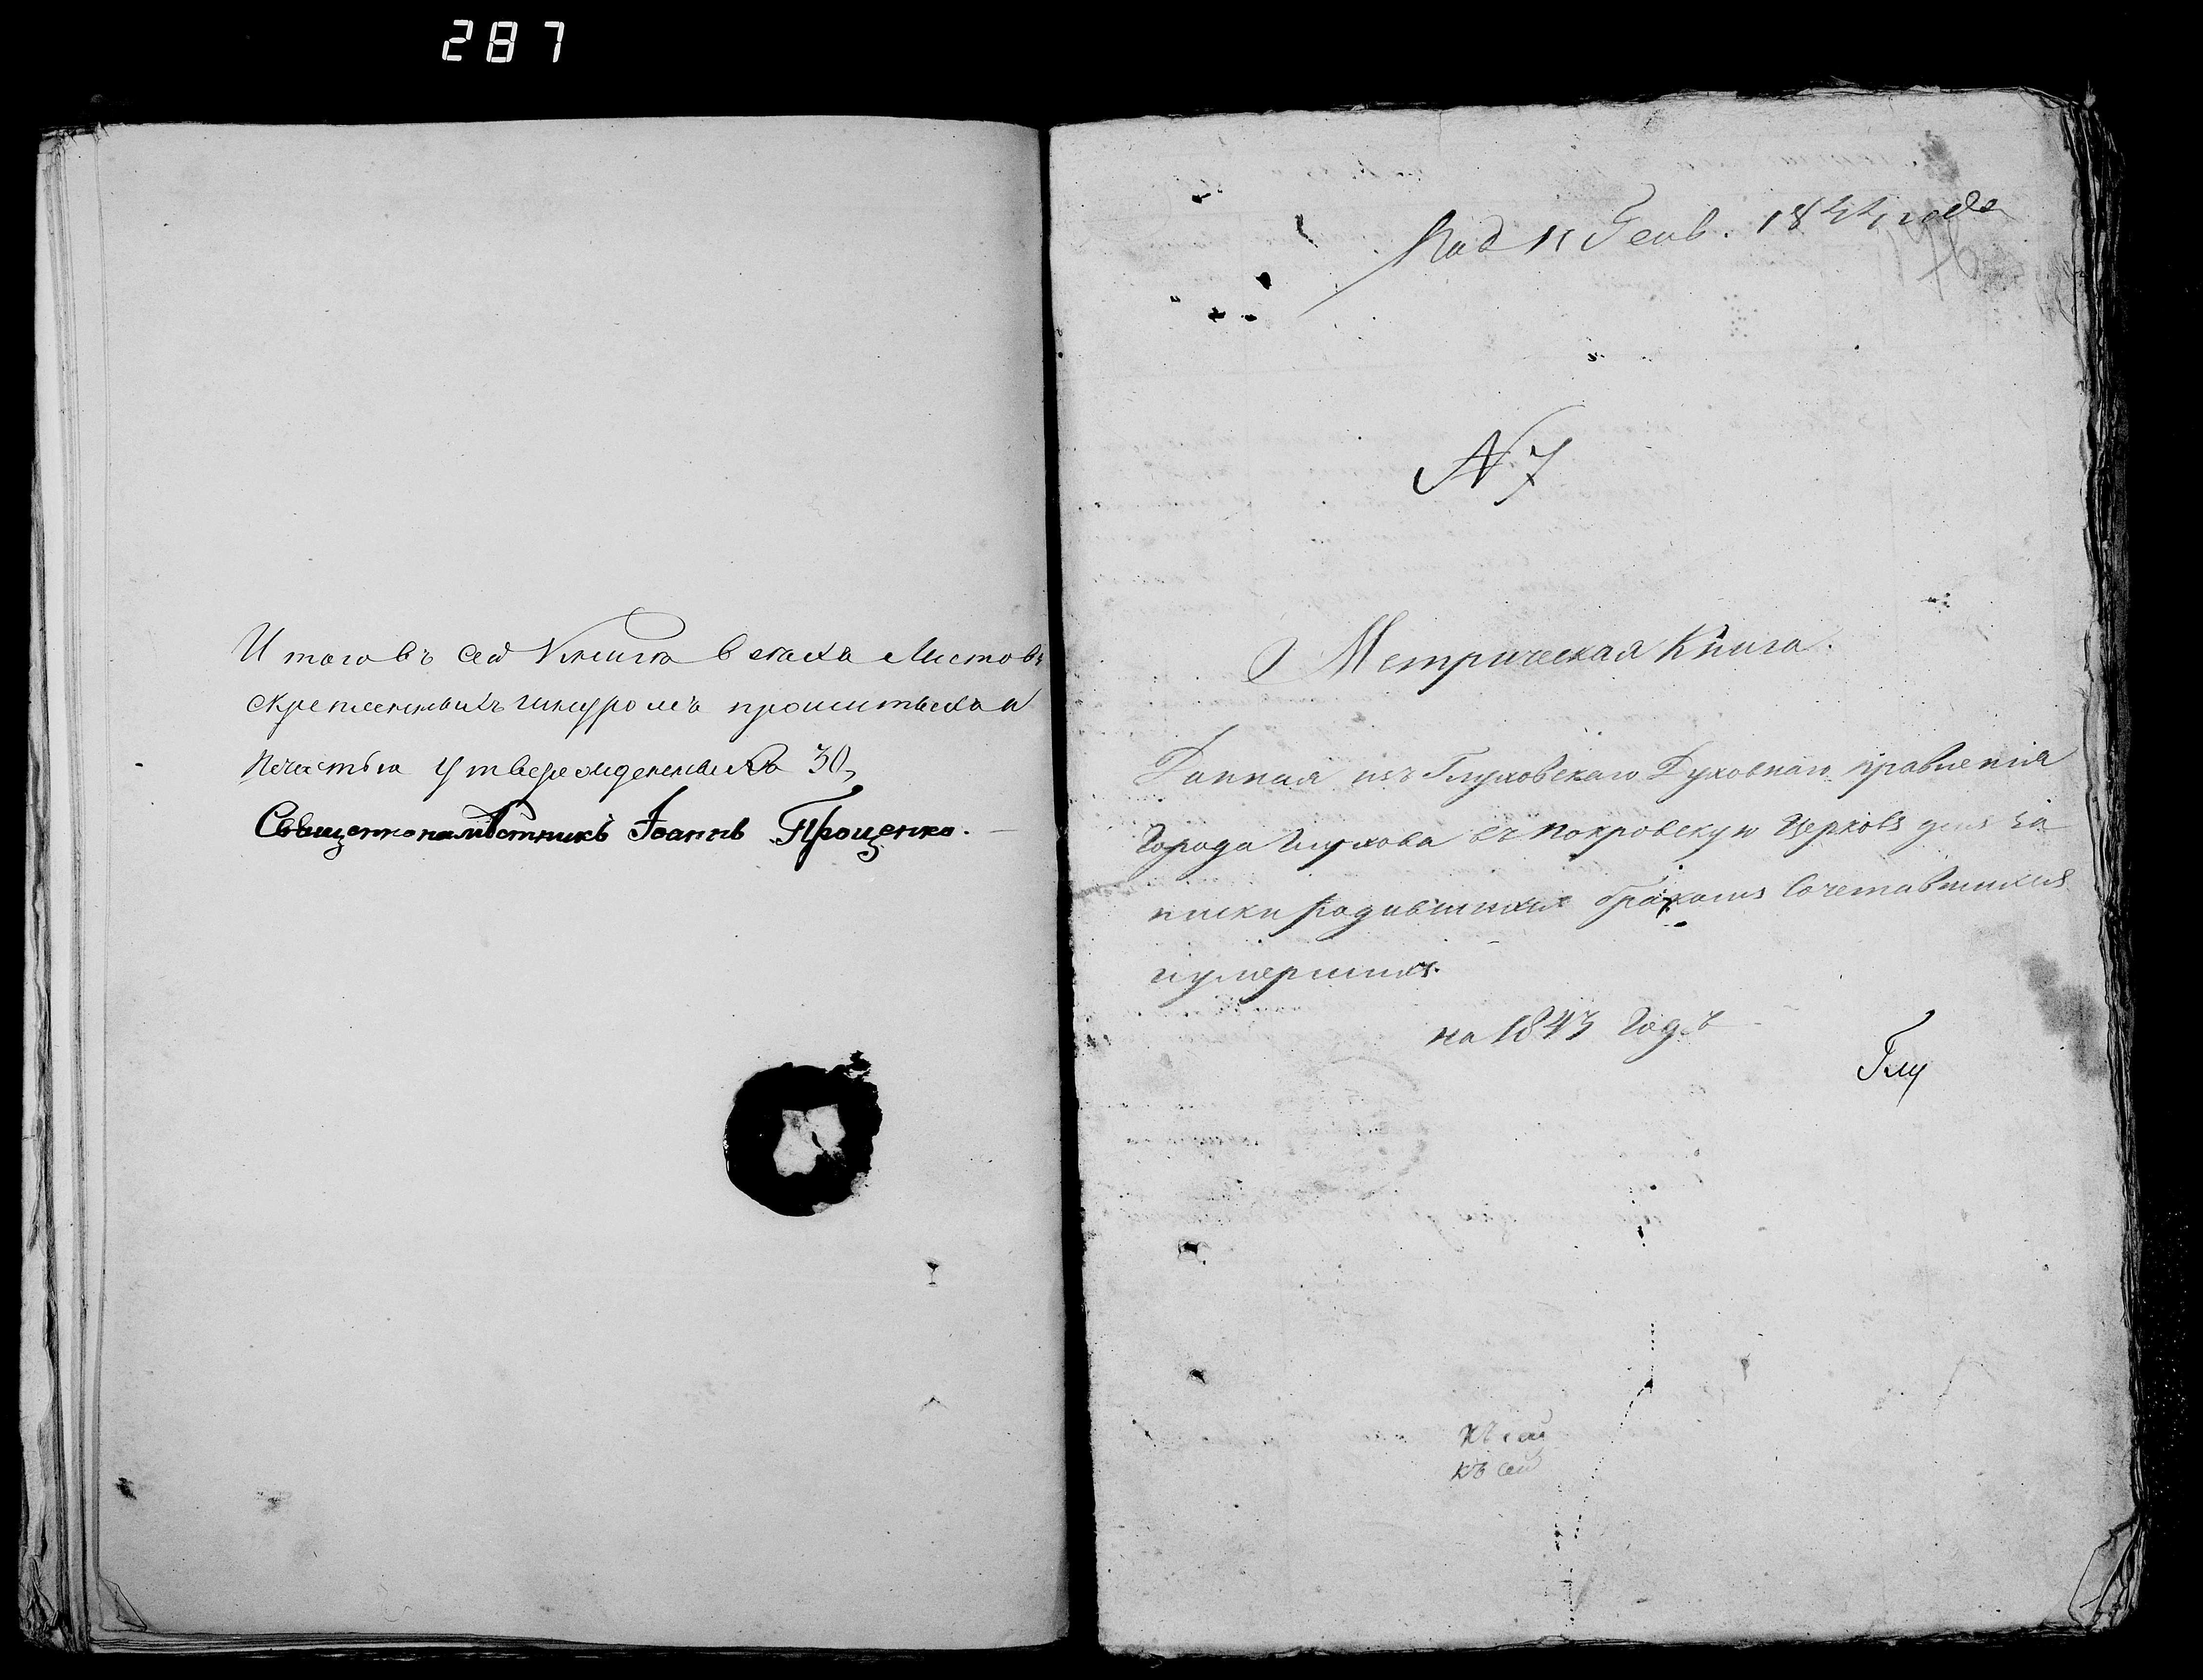 287
Итого въ сей Книги всехъ Листовъ
скрепленныхъ шнуромъ прошитыхъ и
печатью утвержденныхъ 30,
Священнонамѣстникъ Іоаннъ Проценко.
Под 11 Генв. 1844 года
176
N 7
Метрическая Книга.
Данная изъ Глуховскаго Духовнаго правленія
Города Глухова въ Покровскую Церковь для за
писки родившихся бракомъ Сочетавшихся
и умершихъ.
на 1843 Годъ
Глу
къ сей
къ сей